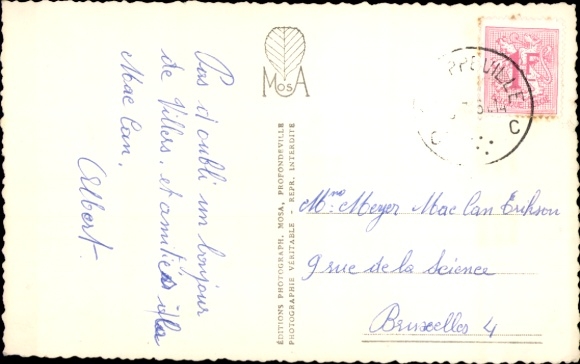 Pas d'oubli un bonjour
de Villers, et amitiés à la
Mac Can.
Albert.
MOSA
ÉDITIONS PHOTOGRAPH. MOSA, PROFONDEVILLE
PHOTOGRAPHIE VÉRITABLE - REPR. INTERDITE
PPEVILLE
C C
Mme Meyer Mac Can Erikson
9 rue de la Science
Bruxelles 4